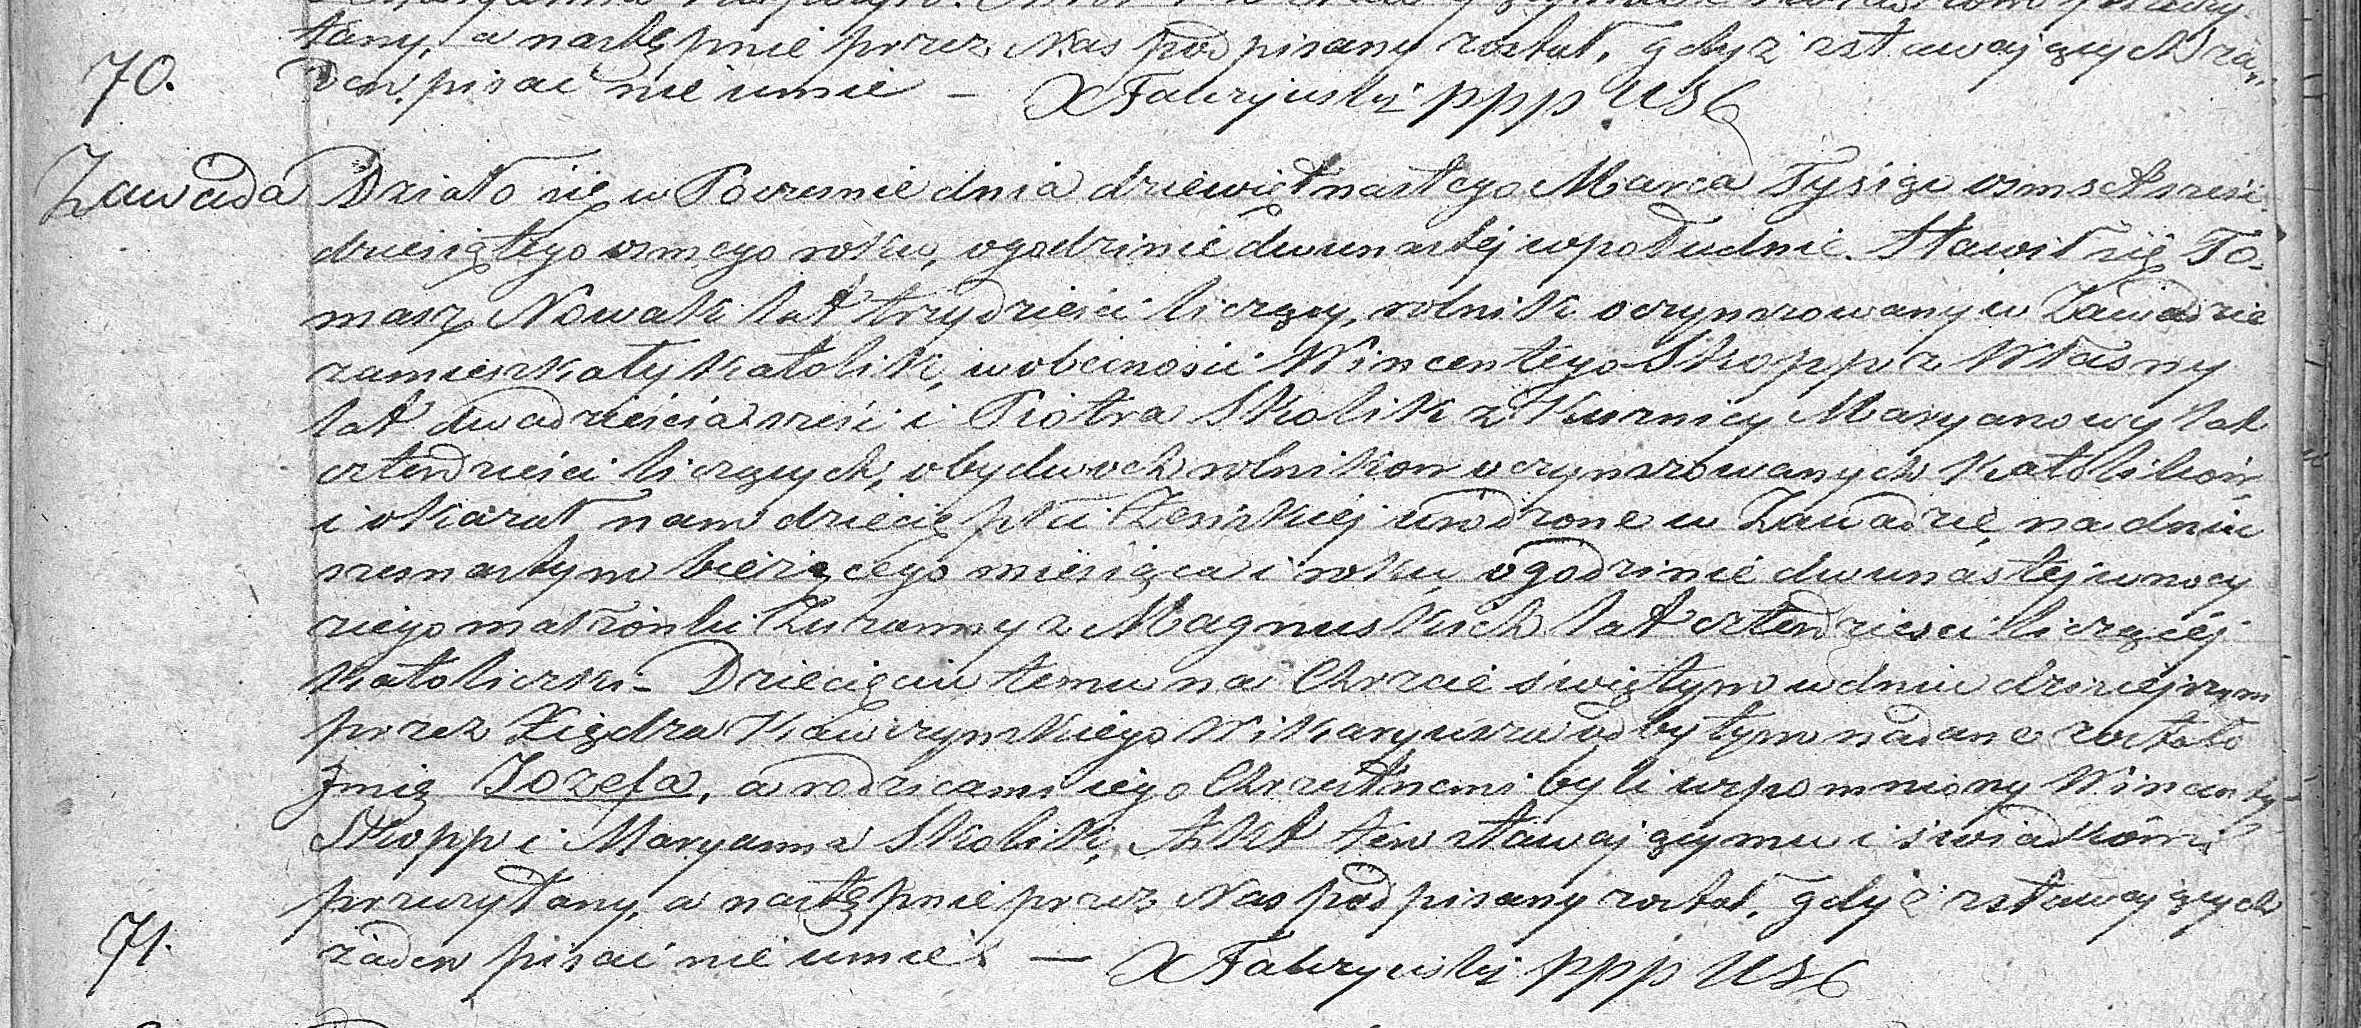 tany, a następnie przez Nas podpisany został, gdyż zstawających ża„
70. den pisać nie umie — X Fabryuski ppp USC
Zawada Działo się w Poczesnie dnia dziewiętnastego Marca Tysiąc osmset sześć
dziesiątego osmego roku, o godzinie dwunastej w południe. Stawił się To„
masz Nowak lat trzydzieści liczący, rolnik oczynszowany w Zawadzie
zamieszkały katolik, w obecności Wincentego Skopp z Własny
lat dwadzieścia sześć i Piotra Skolik z Kuznicy Maryanowy lat
czterdzieści liczących, obydwoch rolników oczynszowanych katolików
i okazał nam dziecię płci Żeńskiej urodzone w Zawadzie, na dniu
szesnastym bieżącego miesiąca i roku, o godzinie dwunastej w nocy
z iego małżonki Zuzanny z Magnuskich lat czterdzieści liczącéj
katoliczki – Dziecięciu temu na Chrzcie świętym w dniu dzisiejszym
przez Xiędza Kawczynskiego Wikaryusza odbytym nadane zostało
Jmię Jozefa, a rodzicami iego Chrzestnemi byli wspomniony Wincenty
Skopp i Maryanna Skolik, Akt ten stawającymu i świadkóm
przeczytany, a następnie przez Nas podpisany został, gdyż zstawających
71. żaden pisać nie umie. — X Fabryuski ppp USC